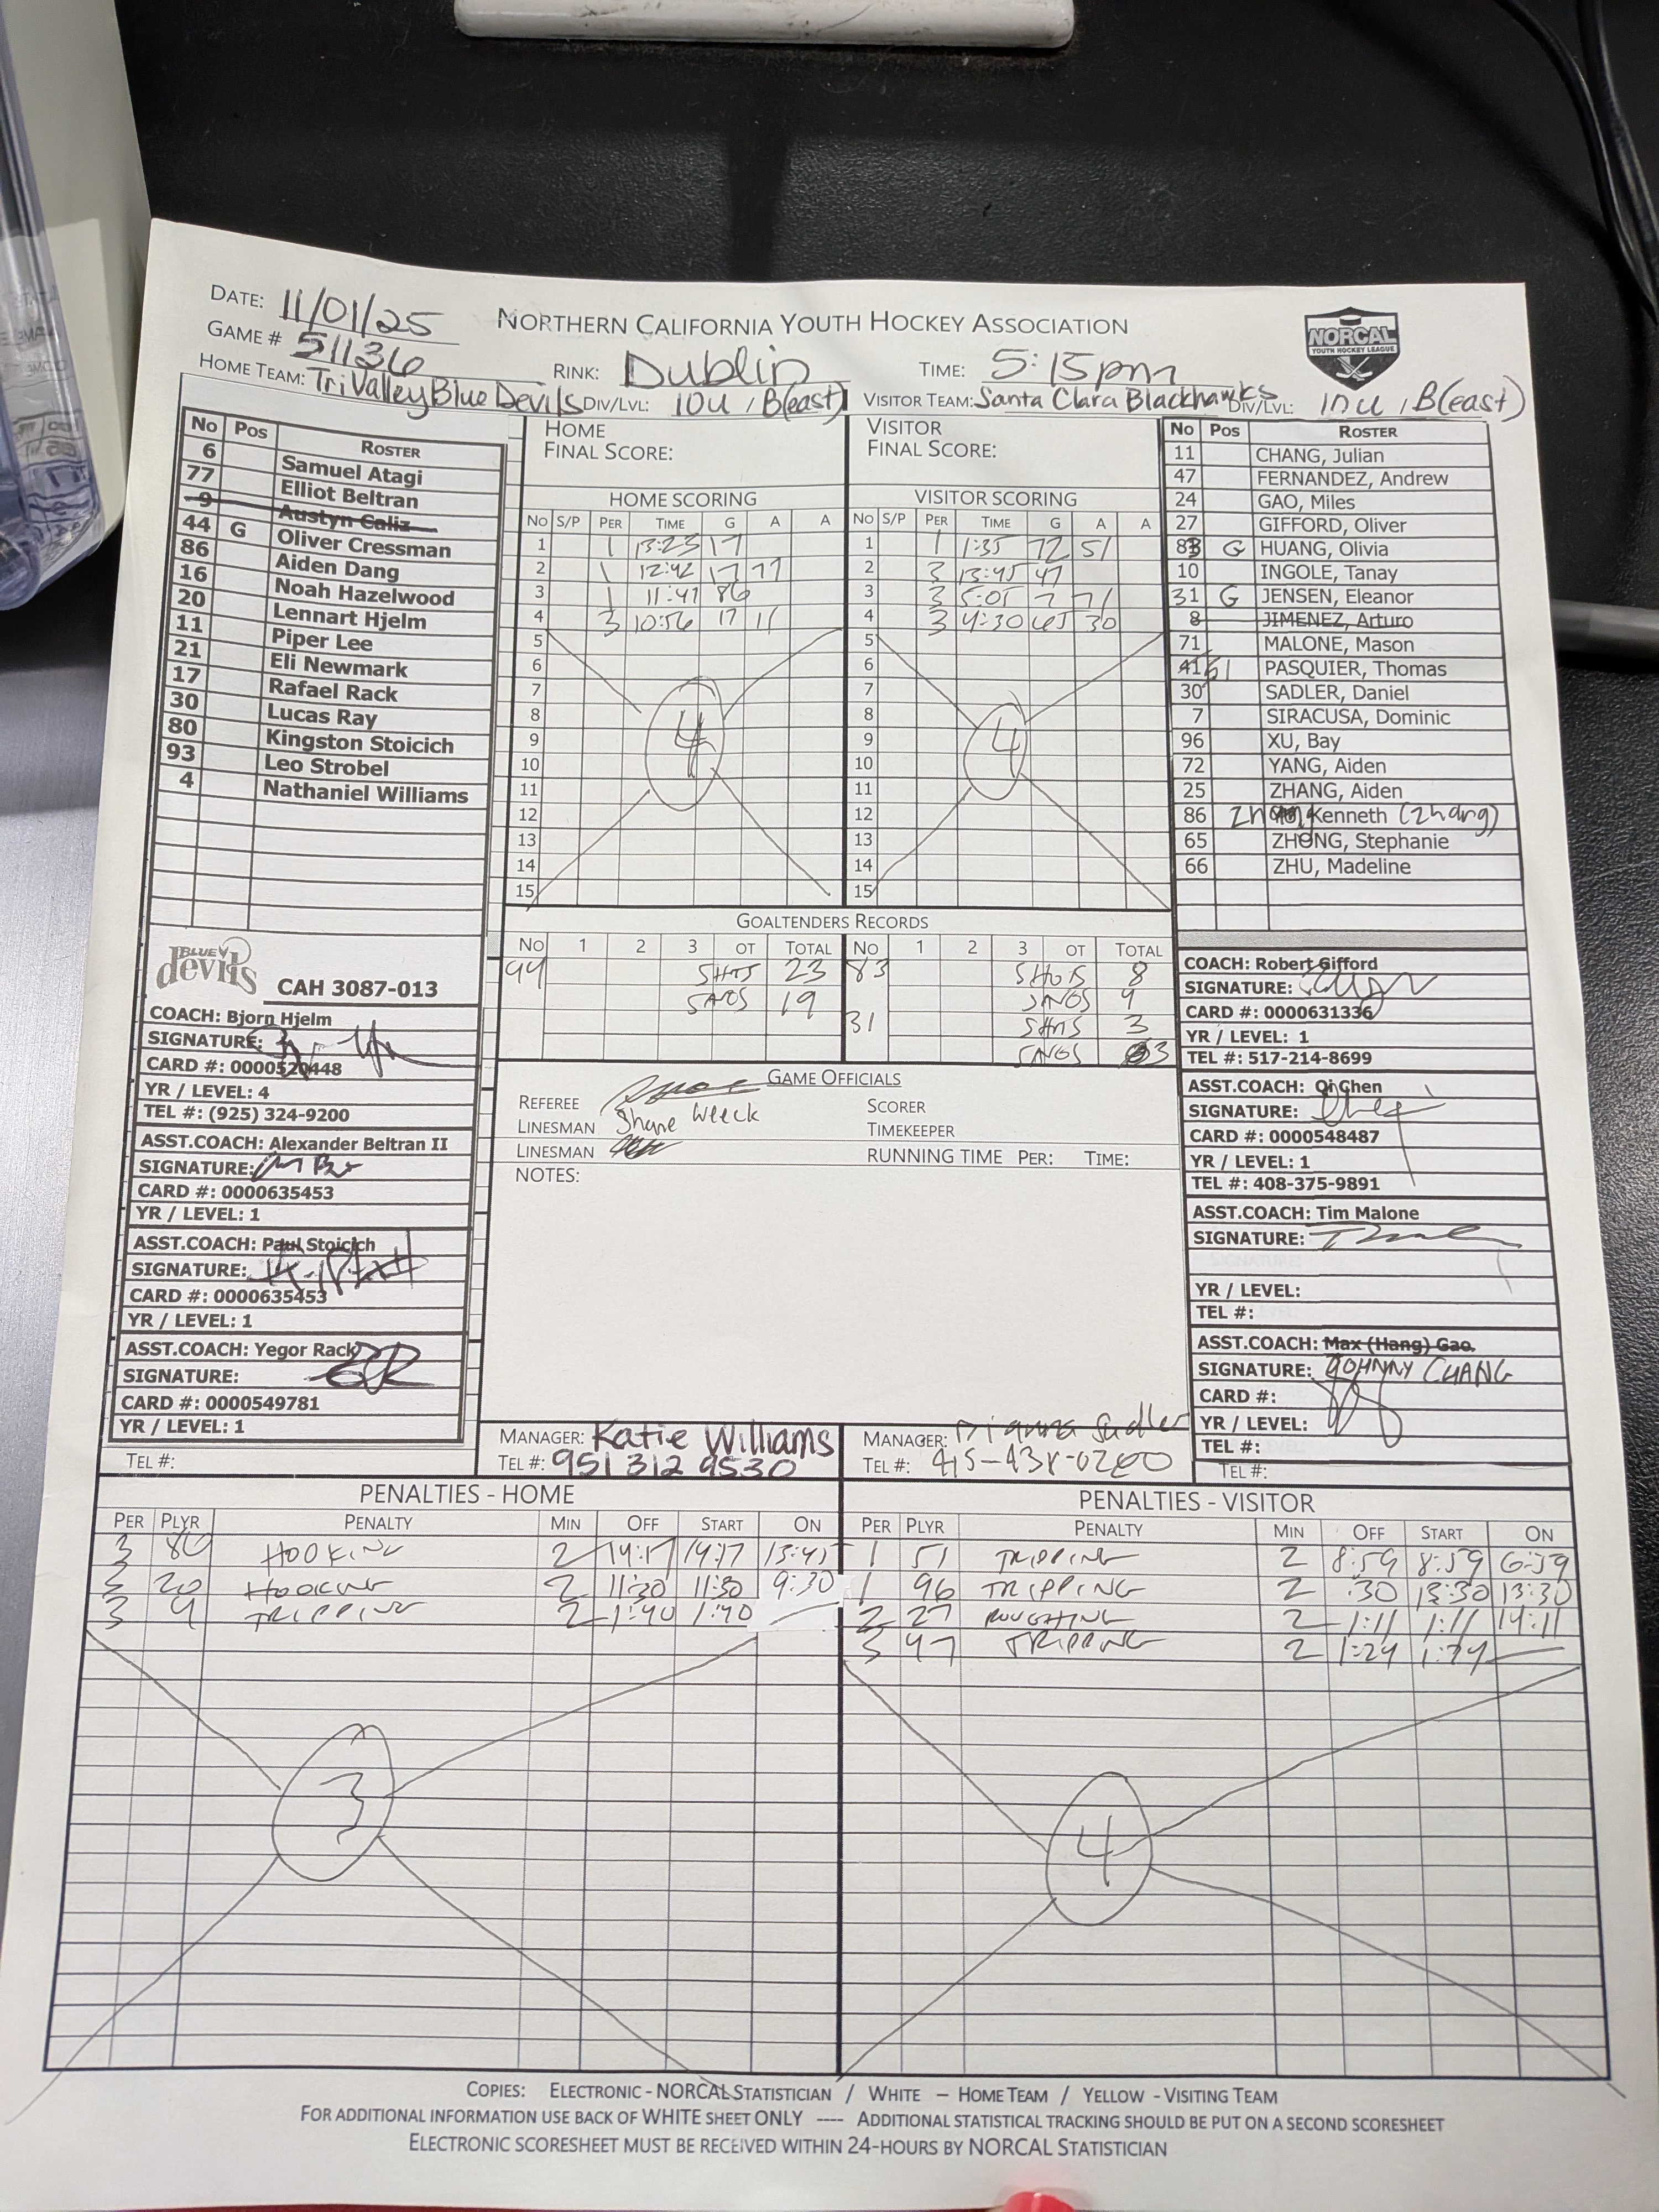 DATE: 11/01/25
NORTHERN CALIFORNIA YOUTH HOCKEY ASSOCIATION
NORCAL
YOUTH HOCKEY LEAGUE
GAME # 51136
RINK: Dublin
TIME: 5:15pm
HOME TEAM: TriValley Blue Devils DIV/LVL: 10U, B(east)
VISITOR TEAM: Santa Clara Blackhawks DIV/LVL: 10U, B(east)
No Pos ROSTER
6 Samuel Atagi
77 Elliot Beltran
9 Austyn Caliz
44 G Oliver Cressman
86 Aiden Dang
16 Noah Hazelwood
20 Lennart Hjelm
11 Piper Lee
21 Eli Newmark
17 Rafael Rack
30 Lucas Ray
80 Kingston Stoicich
93 Leo Strobel
4 Nathaniel Williams
HOME
FINAL SCORE:
HOME SCORING
No S/P PER TIME G A A
1 1 13:23 17
2 1 12:42 17 77
3 1 11:41 86
4 3 10:56 17 11
5
6
7
8
9
10
11
12
13
14
15
4
VISITOR
FINAL SCORE:
VISITOR SCORING
No S/P PER TIME G A A
1 1 1:35 72 51
2 3 13:45 47
3 3 5:05 7 71
4 3 4:30 65 30
5
6
7
8
9
10
11
12
13
14
15
4
No Pos ROSTER
11 CHANG, Julian
47 FERNANDEZ, Andrew
24 GAO, Miles
27 GIFFORD, Oliver
83 G HUANG, Olivia
10 INGOLE, Tanay
31 G JENSEN, Eleanor
8 JIMENEZ, Arturo
71 MALONE, Mason
41 51 PASQUIER, Thomas
30 SADLER, Daniel
7 SIRACUSA, Dominic
96 XU, Bay
72 YANG, Aiden
25 ZHANG, Aiden
86 Kenneth (Zhang)
65 ZHONG, Stephanie
66 ZHU, Madeline
GOALTENDERS RECORDS
No 1 2 3 OT TOTAL No 1 2 3 OT TOTAL
44 SHTS 23 83 SHOTS 8
SAVES 19 SAVES 4
31 SHTS 3
SAVES 3
BLUE devils
CAH 3087-013
COACH: Bjorn Hjelm
SIGNATURE:
CARD #: 0000520448
YR / LEVEL: 4
TEL #: (925) 324-9200
ASST.COACH: Alexander Beltran II
SIGNATURE:
CARD #: 0000635453
YR / LEVEL: 1
ASST.COACH: Paul Stoicich
SIGNATURE:
CARD #: 0000635453
YR / LEVEL: 1
ASST.COACH: Yegor Rack
SIGNATURE:
CARD #: 0000549781
YR / LEVEL: 1
TEL #:
GAME OFFICIALS
REFEREE
LINESMAN Shane Weeck
LINESMAN
SCORER
TIMEKEEPER
RUNNING TIME PER: TIME:
NOTES:
COACH: Robert Gifford
SIGNATURE:
CARD #: 0000631336
YR / LEVEL: 1
TEL #: 517-214-8699
ASST.COACH: Qi Chen
SIGNATURE:
CARD #: 0000548487
YR / LEVEL: 1
TEL #: 408-375-9891
ASST.COACH: Tim Malone
SIGNATURE:
YR / LEVEL:
TEL #:
ASST.COACH: Max (Hang) Gao
SIGNATURE: JOHNNY CHANG
CARD #:
YR / LEVEL:
TEL #:
TEL #:
MANAGER: Katie Williams
TEL #: 951 312 9530
MANAGER: Sadler
TEL #:
PENALTIES - HOME
PER PLYR PENALTY MIN OFF START ON
3 86 HOOKING 2 14:17 14:17 13:45
3 20 HOOKING 2 11:30 11:30 9:30
3 4 TRIPPING 2 1:40 1:40
3
PENALTIES - VISITOR
PER PLYR PENALTY MIN OFF START ON
1 51 TRIPPING 2 8:59 8:59 6:59
1 96 TRIPPING 2 :30 13:30 13:30
2 27 ROUGHING 2 1:11 1:11 14:11
3 47 TRIPPING 2 1:24 1:24
4
COPIES: ELECTRONIC - NORCAL STATISTICIAN / WHITE – HOME TEAM / YELLOW - VISITING TEAM
FOR ADDITIONAL INFORMATION USE BACK OF WHITE SHEET ONLY ---- ADDITIONAL STATISTICAL TRACKING SHOULD BE PUT ON A SECOND SCORESHEET
ELECTRONIC SCORESHEET MUST BE RECEIVED WITHIN 24-HOURS BY NORCAL STATISTICIAN